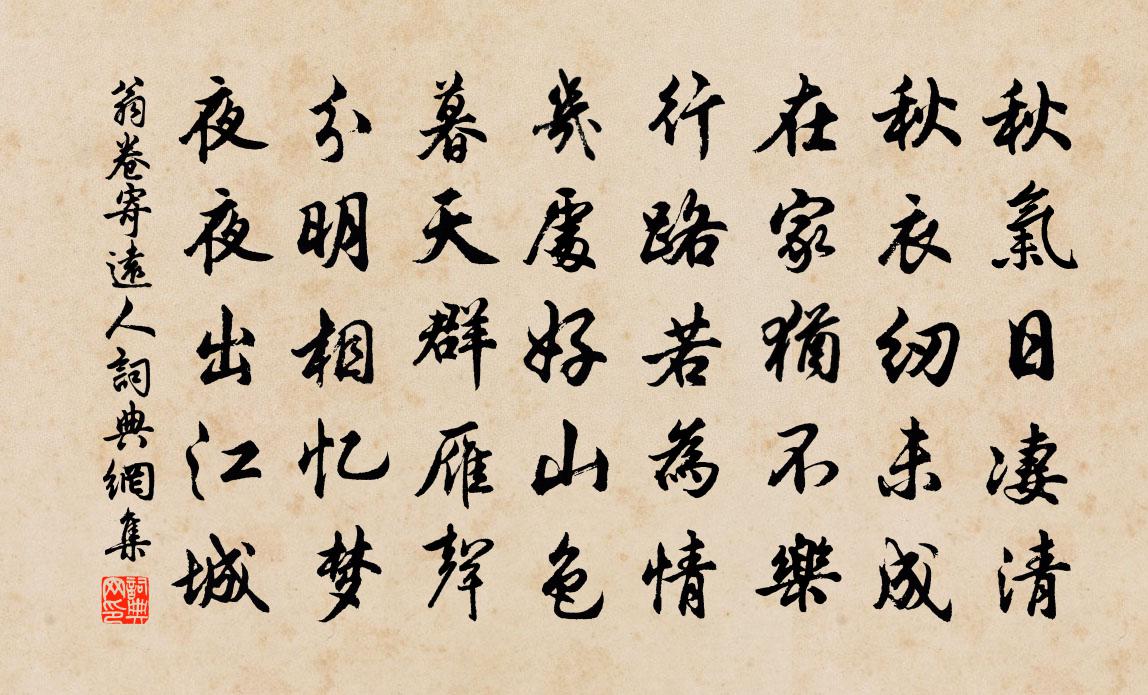 秋氣日凄清
秋衣纫未成
在家猶不樂
行路若為情
幾處好山色
暮天群雁聲
分明相忆梦
夜夜出江城
翁卷寄遠人詞典網集
詞典
网印